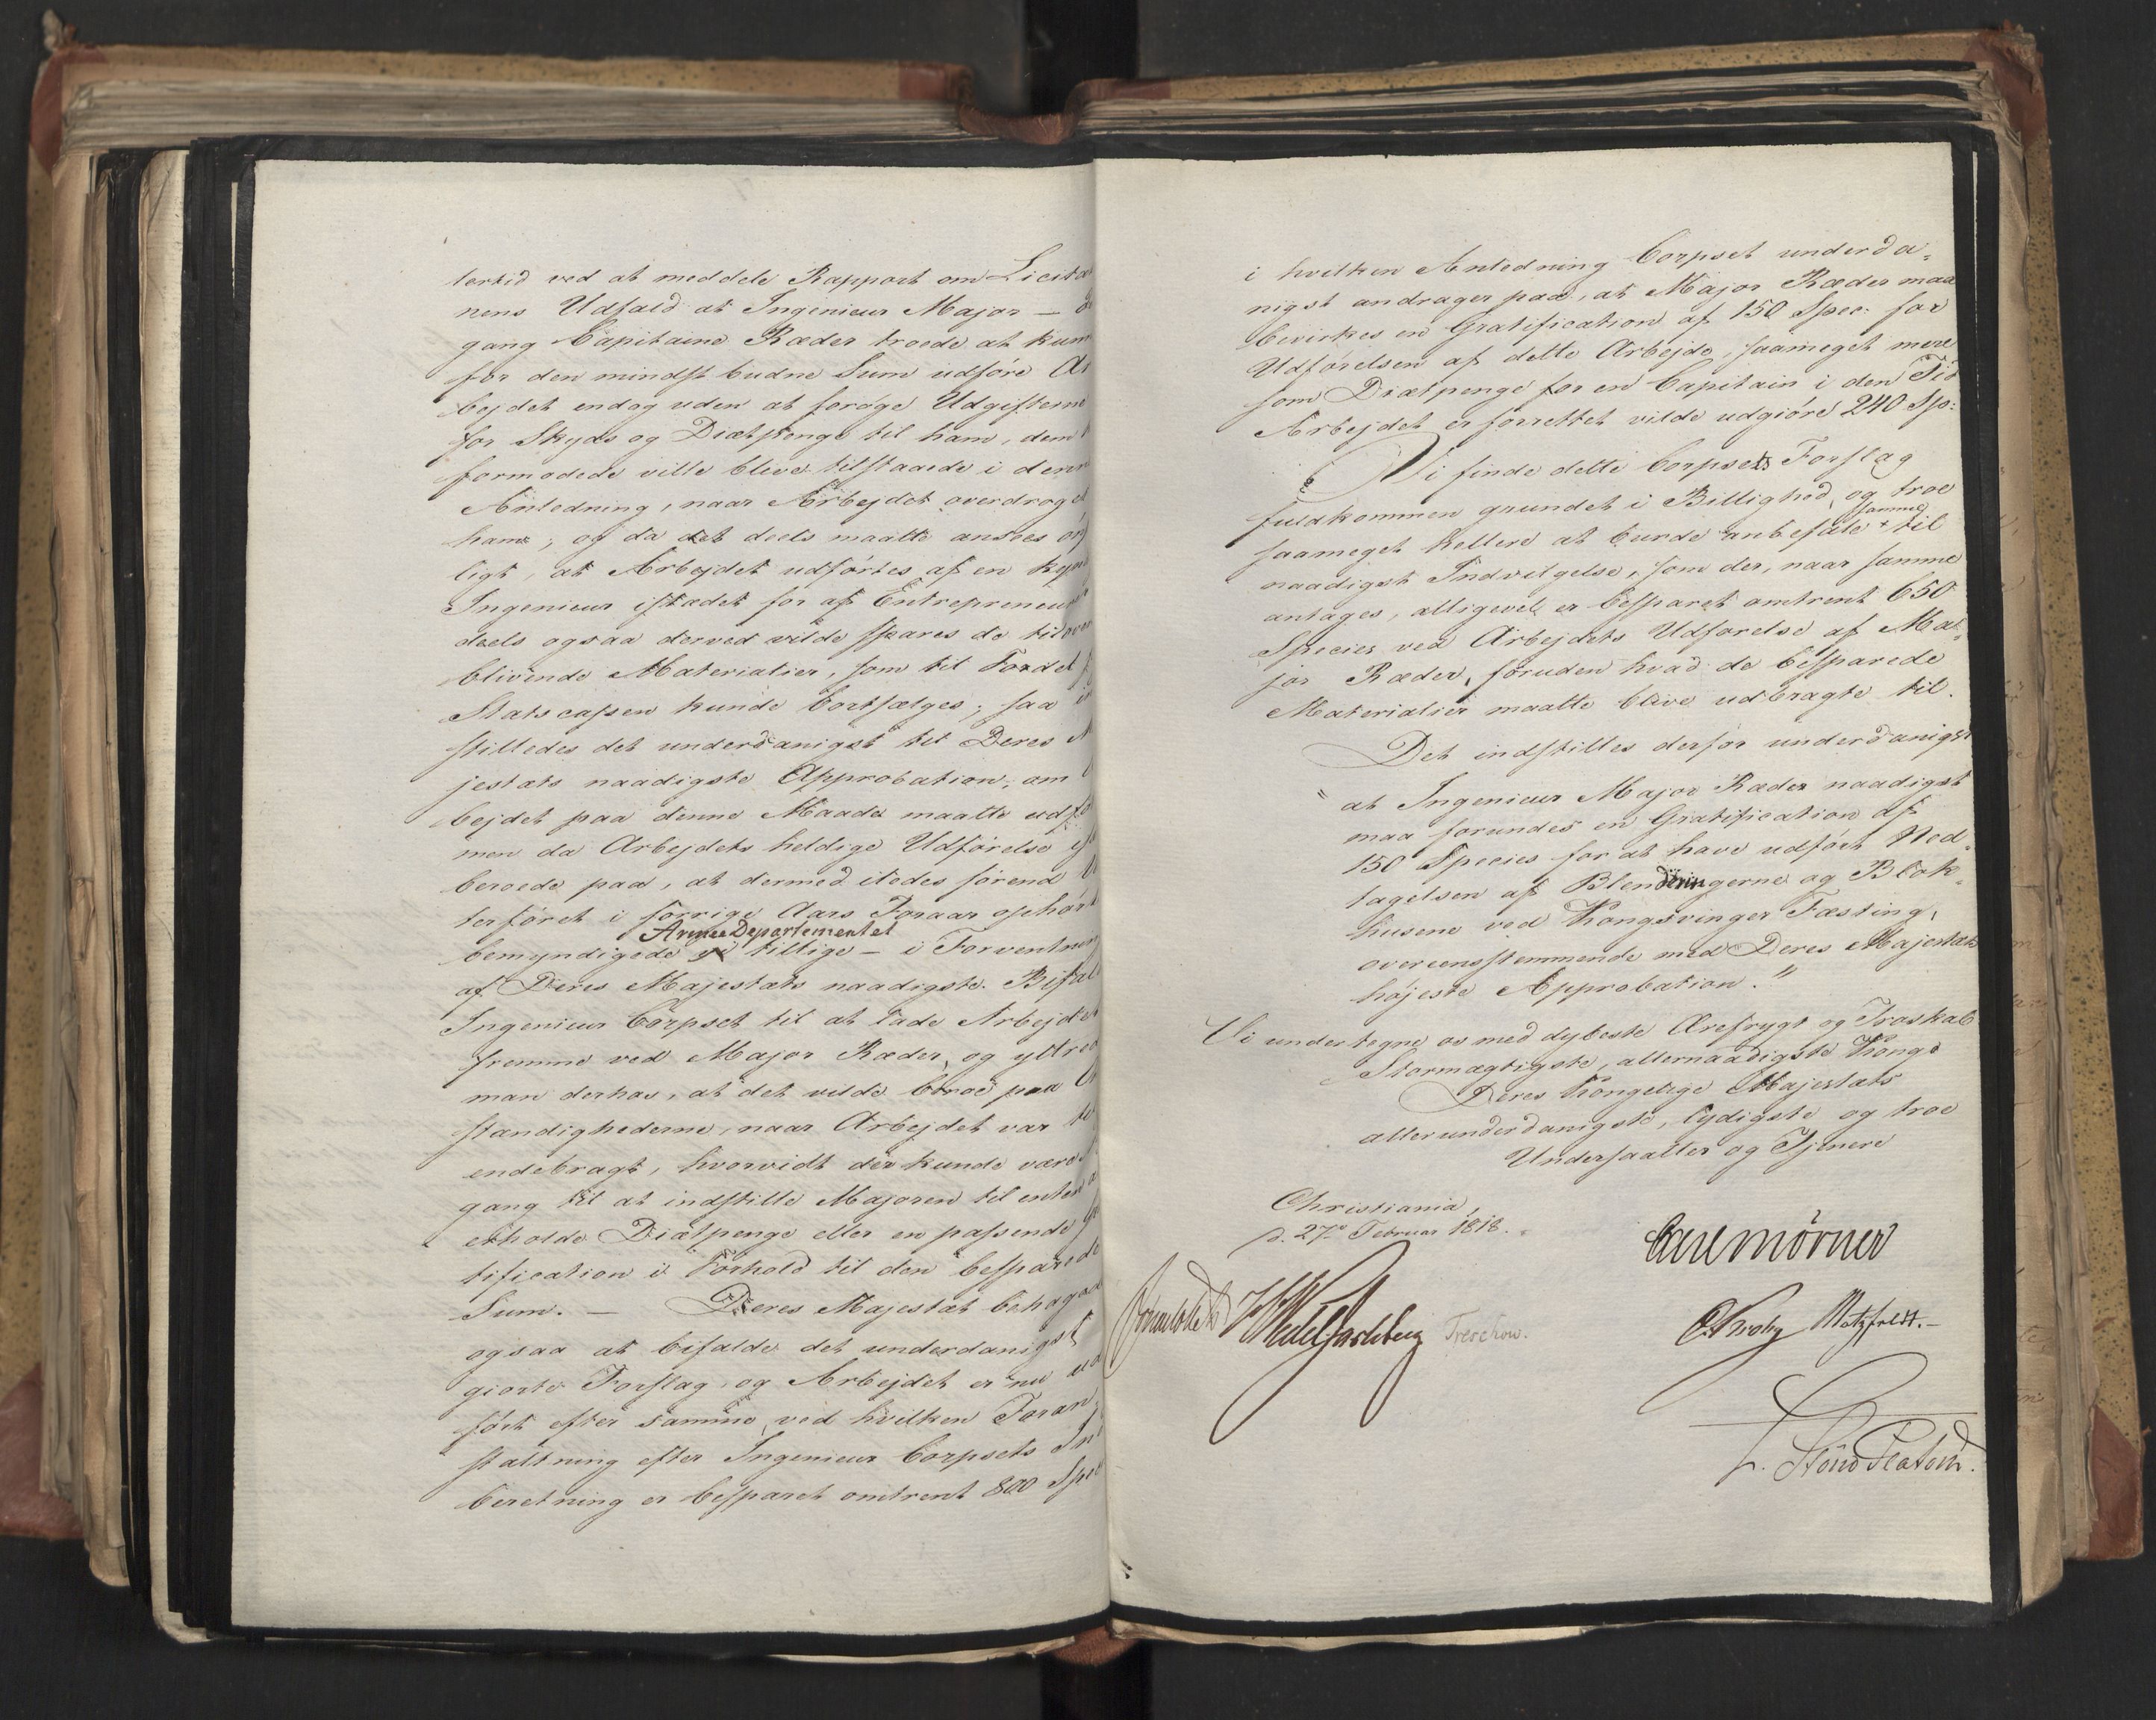 lertid ved at meddele Rapport om Licita
nens Udfald at Ingenieur Major –
gang Capitaine Ræder troede at kun
for den mindst budne Sum udføre Ar
bejdet endog uden at forøge Udgifterne
for Skyds og Diætpenge til ham, dem
formodede ville blive tilstaaede i denn
Anledning, naar Arbejdet overdroges
ham; og da det deels maatte ansees øn
ligt, at Arbejdet udførtes af en kyn
Ingenieur istædet for af Entrepreneur
deels ogsaa derved vilde spares de tilover
blivende Materialier, som til Fordel f
Statscassen kunde bortsælges; saa in
stilledes det underdanigst til Deres M
jestæts naadigste Approbation, om
bejdet paa denne Maade maatte udfø
men da Arbejdets heldige Udførelse
beroede paa, at dermed iledes førend
terføret i forrige Aars Foraar ophørt
Armee Departementet
bemyndigede tillige – i Forventning
af Deres Majestæts naadigste Bifald
Ingenieur Corpset til at lade Arbejdet
fremme ved Major Ræder, og yttred
man derhos, at det vilde beroe paa
stændighederne, naar Arbejdet var
endebragt, hvorvidt der kunde være
gang til at indstille Majoren til enten
erholde Diætpenge eller en passende
tification i Forhold til den besparede
Sum. – Deres Majestæt behagede
ogsaa at bifalde det underdanigst
giorte Forslag, og Arbejdet er nu ud
ført efter samme, ved hvilken Foran
staltning efter Ingenieur Corpsets In
beretning er besparet omtrent 800 Spe
i hvilken Anledning Corpset underda-
nigst andrager paa, at Major Ræder maa
bevirkes en Gratification af 150 Spec: for
Udførelsen af dette Arbejde, saameget mere
som Diætpenge for en Capitain i den Tid
Arbejdet er forrettet vilde udgiøre 240 Sp:
Vi finde dette Corpsets Forslag
fuldkommen grundet i Billighed, og troe
samme
saameget hellere at burde anbefale + til
naadigst Indvilgelse, som der, naar samme
antages, alligevel er besparet omtrent 650
Species ved Arbejdets Udførelse af Ma-
jor Ræder, foruden hvad de besparede
Materialier maatte blive udbragte til.
Det indstilles derfor underdanigst
" at Ingenieur Major Ræder naadigst
maa forundes en Gratification af
150 Species for at have udført Ned-
tagelsen af Blenderingerne og Blok-
husene ved Kongsvinger Fæstning,
overeensstemmende med Deres Majestæts
højeste Approbation."
Vi undertegne os med dybeste Ærefrygt og Troskab
Stormægtigste, allernaadigste Konge
Deres Kongelige Majestæts
allerunderdanigste, lydigste og troe
Undersaatter og Tjenere
Christiania,
d. 27de Februar 1818.
Carl Mörner
Sommerhielm
HWedel Jarlsberg
Treschow.
CKrohg
Motzfeldt. –
L. Stoud Platou.